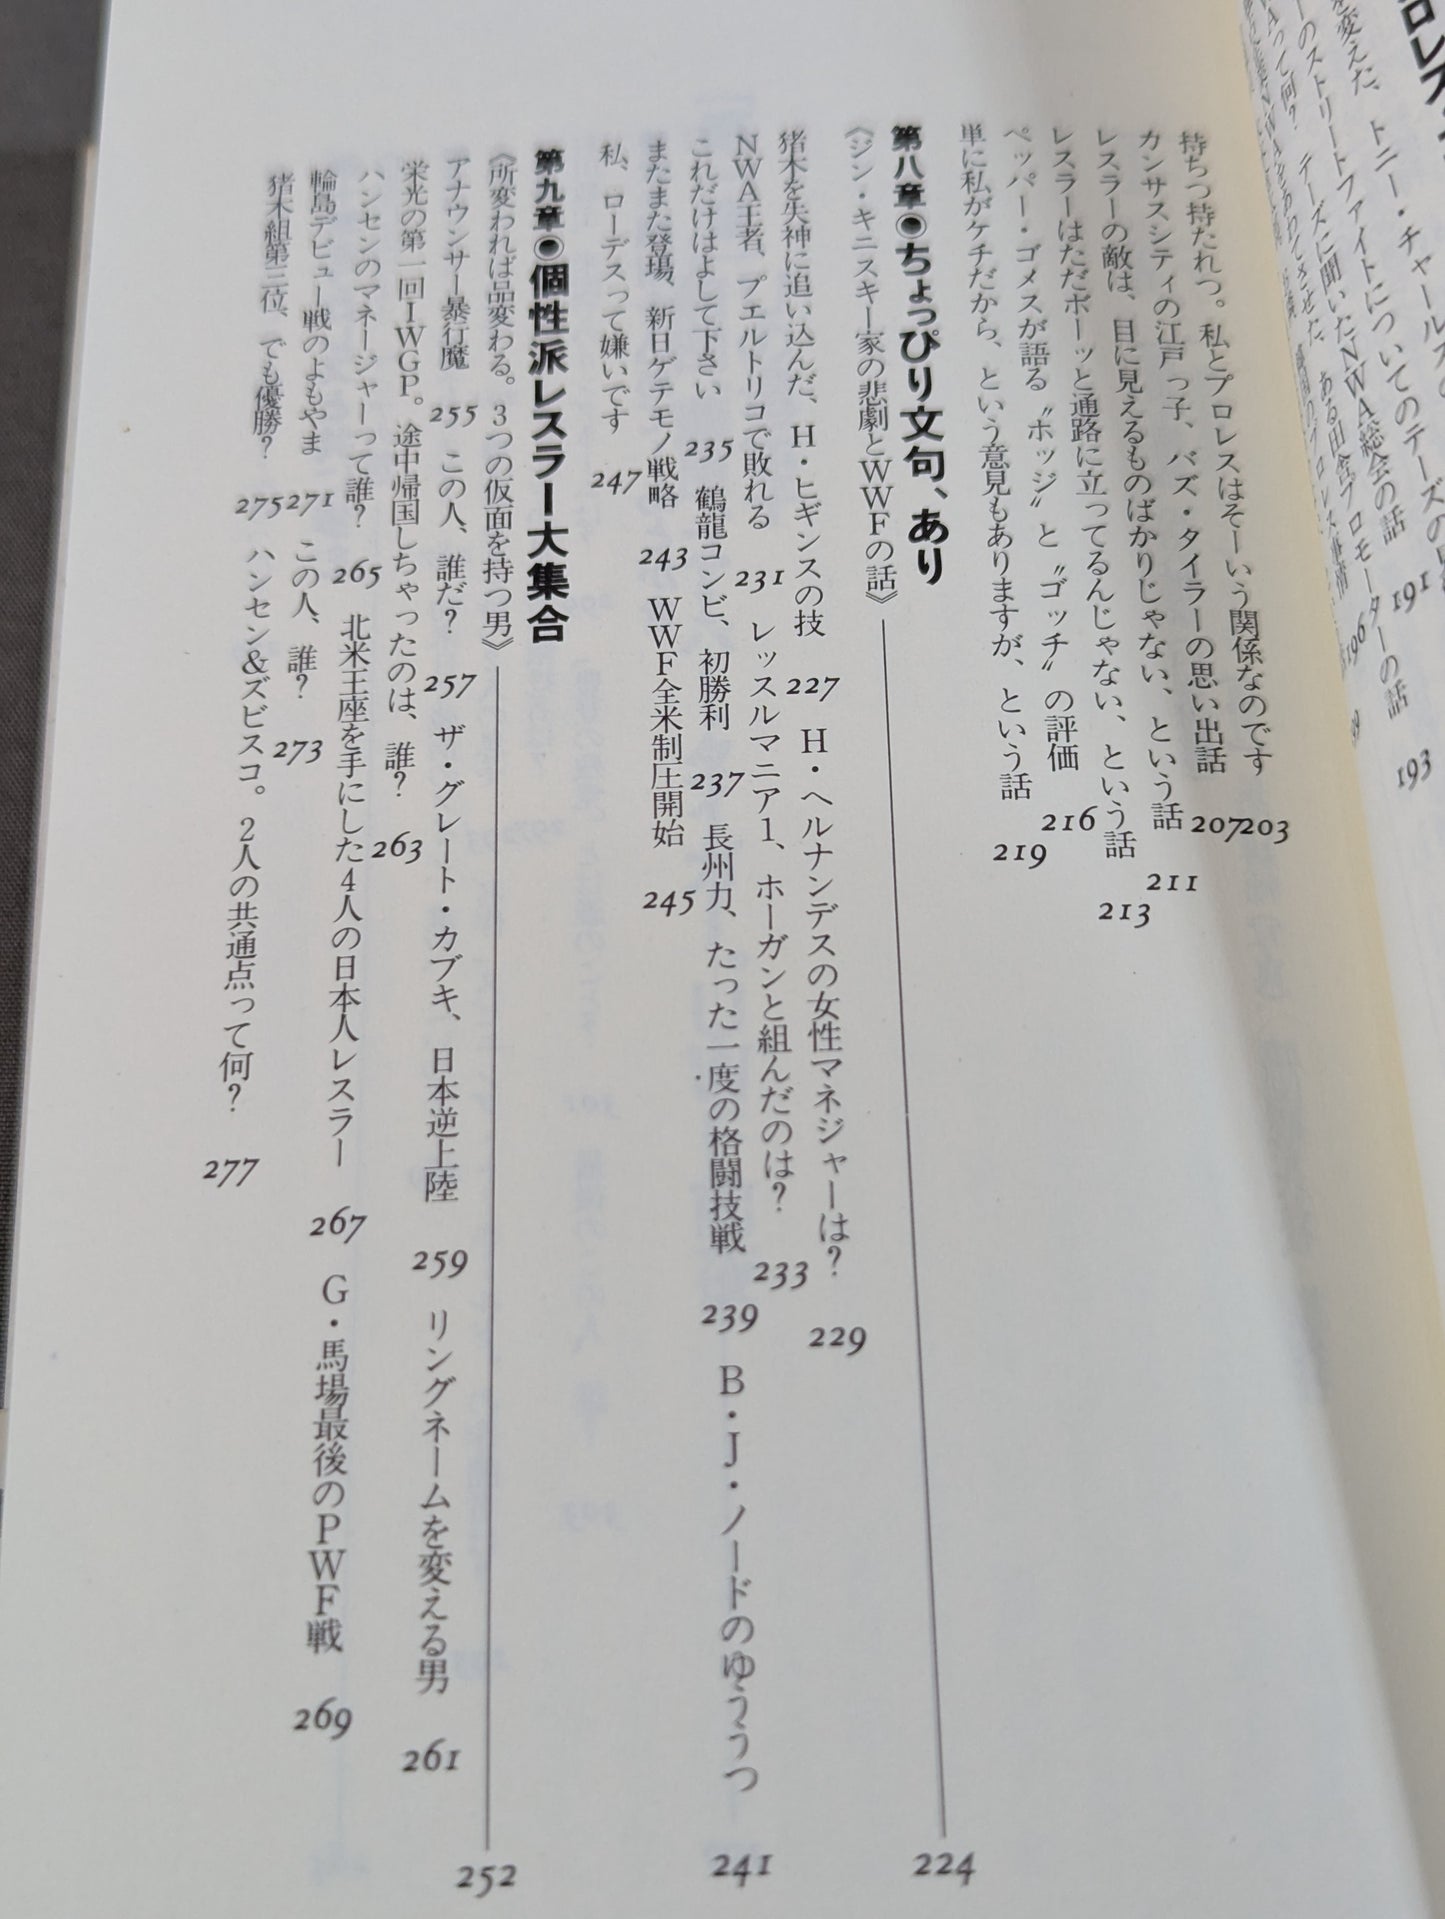 持ちつ持たれつ。私とプロレスはそーいう関係なのです 203
カンサスシティの江戸っ子、バズ・タイラーの思い出話 207
レスラーの敵は、目に見えるものばかりじゃない、という話 211
レスラーはただボーッと通路に立ってるんじゃない、という話 213
ペッパー・ゴメスが語る〝ホッジ〟と〝ゴッチ〟の評価 216
単に私がケチだから、という意見もありますが、という話 219
第八章◉ちょっぴり文句、あり
《ジン・キニスキー家の悲劇とWWFの話》 224
猪木を失神に追い込んだ、H・ヒギンスの技 227 H・ヘルナンデスの女性マネジャーは? 229
NWA王者、プエルトリコで敗れる 231 レッスルマニア1、ホーガンと組んだのは? 233
これだけはよして下さい 235 鶴龍コンビ、初勝利 237 長州力、たった一度の格闘技戦 239 B・J・ノードのゆううつ 241
またまた登場、新日ゲテモノ戦略 243 WWF全米制圧開始 245
私、ローデスって嫌いです 247
第九章◉個性派レスラー大集合
《所変われば品変わる。3つの仮面を持つ男》 252
アナウンサー暴行魔 255 この人、誰だ? 257 ザ・グレート・カブキ、日本逆上陸 259 リングネームを変える男 261
栄光の第一回IWGP。途中帰国しちゃったのは、誰? 263
ハンセンのマネージャーって誰? 265 北米王座を手にした4人の日本人レスラー 267 G・馬場最後のPWF戦 269
輪島デビュー戦のよもやま 271 この人、誰? 273
猪木組第三位、でも優勝? 275 ハンセン&ズビスコ。2人の共通点って何? 277